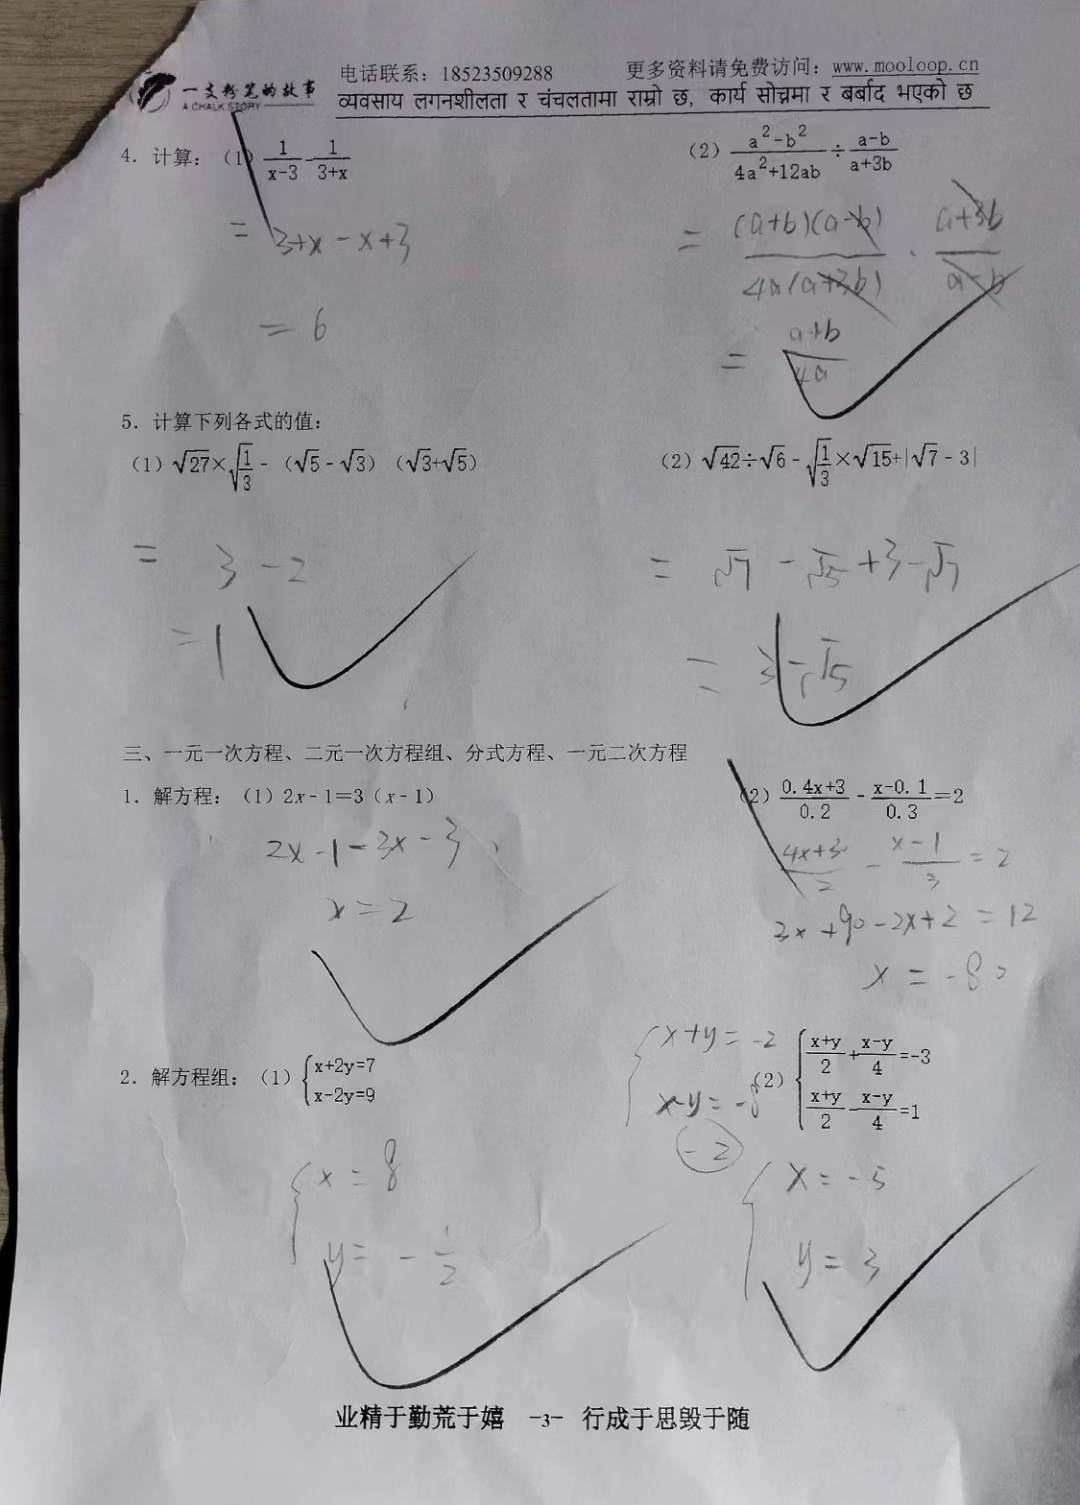 一支粉笔的故事
A CHALK STORY
电话联系：18523509288 更多资料请免费访问：www.mooloop.cn
व्यवसाय लगनशीलता र चंचलतामा राम्रो छ, कार्य सोच्नमा र बर्बाद भएको छ
4. 计算：（1）1/(x-3) - 1/(3+x) （2）(a²-b²)/(4a²+12ab) ÷ (a-b)/(a+3b)
= 3+x-x+3
= 6
= (a+b)(a-b)/4a(a+3b) · (a+3b)/(a-b)
= (a+b)/4a
5. 计算下列各式的值：
（1）√27×√(1/3) -（√5-√3）（√3+√5） （2）√42÷√6-√(1/3)×√15+|√7-3|
= 3-2
= 1
= √7-√5+3-√7
= 3-√5
三、一元一次方程、二元一次方程组、分式方程、一元二次方程
1. 解方程：（1）2x-1=3（x-1） （2）(0.4x+3)/0.2 - (x-0.1)/0.3=2
2x-1=3x-3
x=2
(4x+3)/2 - (x-1)/3 = 2
+90-2x+2=12
x=-80
2. 解方程组：（1）{x+2y=7 x-2y=9 （2）{(x+y)/2+(x-y)/4=-3 (x+y)/2-(x-y)/4=1
{x=8
y=-1/2
{x+y=-2
x-y=-8
-2
{x=-5
y=3
业精于勤荒于嬉 -3- 行成于思毁于随